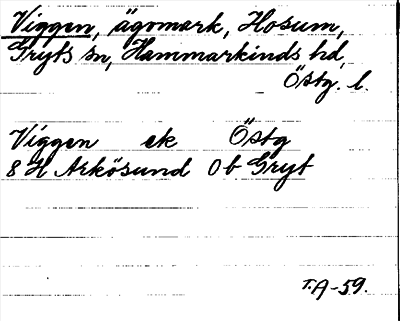 Viggen, ägomark, Hosum,
Gryts sn, Hammarkinds hd,
Östg. l.
Viggen ek Östg
8 H Arkösund 0 b Gryt
T.A-59.